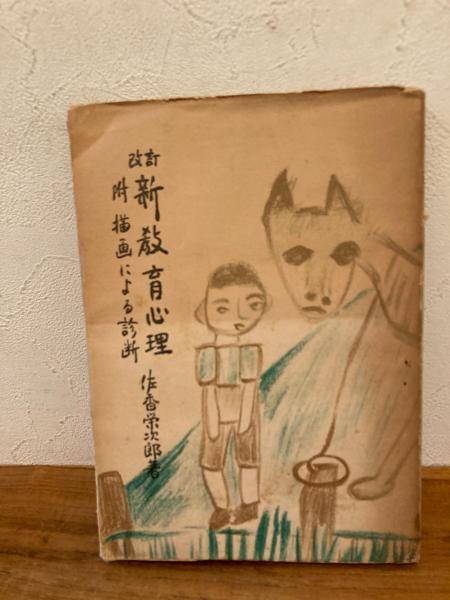 改訂
新教育心理
附 描画による診断
作香栄次郎著